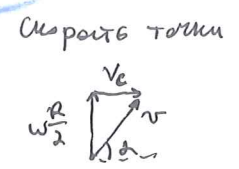 Скорость точки
Vc
ω R/2
v
α